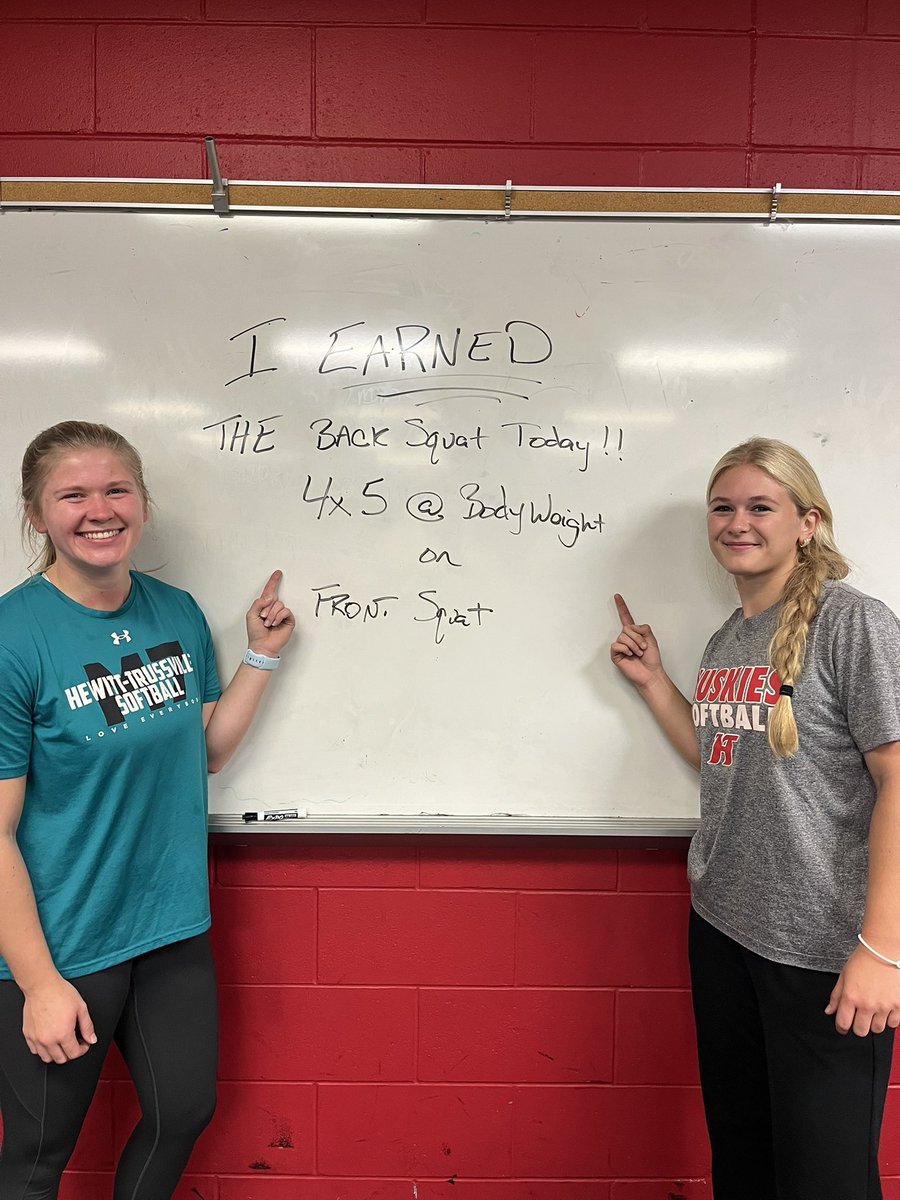 I EARNED
THE BACK Squat Today!!
4x5 @ BodyWeight
on
FRONT Squat
HEWITT-TRUSSVILLE
SOFTBALL
LOVE EVERYBODY
HUSKIES
SOFTBALL
HT